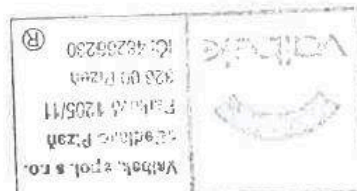 Valbek, spol. s r.o.
středisko Plzeň
Parková 1205/11
326 00 Plzeň
IČ: 48266230
®
valbek